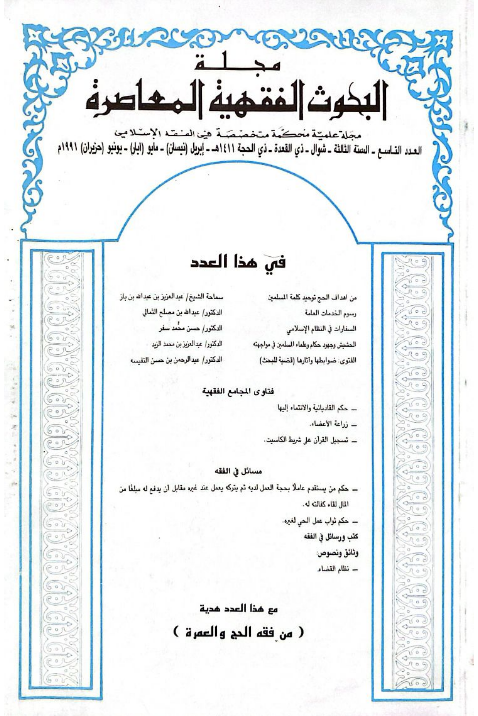 مجلة
البحوث الفقهية المعاصرة
مجلة علمية محكمة متخصصة في الفقه الإسلامي
العدد التاسع - السنة الثالثة - شوال - ذي القعدة - ذي الحجة ١٤١١هـ - إبريل (نيسان) - مايو (أيار) - يونيو (حزيران) ١٩٩١م
في هذا العدد
من اهداف الحج توحيد كلمة المسلمين سماحة الشيخ/ عبدالعزيز بن عبدالله بن باز
رسوم الخدمات العامة الدكتور/ عبدالله بن مصلح الثمالي
السفارات في النظام الإسلامي الدكتور/ حسن محمد سفر
الحشيش وجهود حكام وعلماء المسلمين في مواجهته الدكتور/ عبدالعزيز بن محمد الزيد
الفتوى: ضوابطها وآثارها (قضية للبحث) الدكتور/ عبدالرحمن بن حسن النفيسه
فتاوى المجامع الفقهية
ـ حكم القاديانية والانتماء إليها
ـ زراعة الأعضاء.
ـ تسجيل القرآن على شريط الكاسيت.
مسائل في الفقه
ـ حكم من يستقدم عاملاً بحجة العمل لديه ثم يتركه يعمل عند غيره مقابل أن يدفع له مبلغاً من
المال لقاء كفالته له.
ـ حكم ثواب عمل الحي لغيره.
كتب ورسائل في الفقه
وثائق ونصوص:
ـ نظام القضاء.
مع هذا العدد هدية
( من فقه الحج والعمرة )